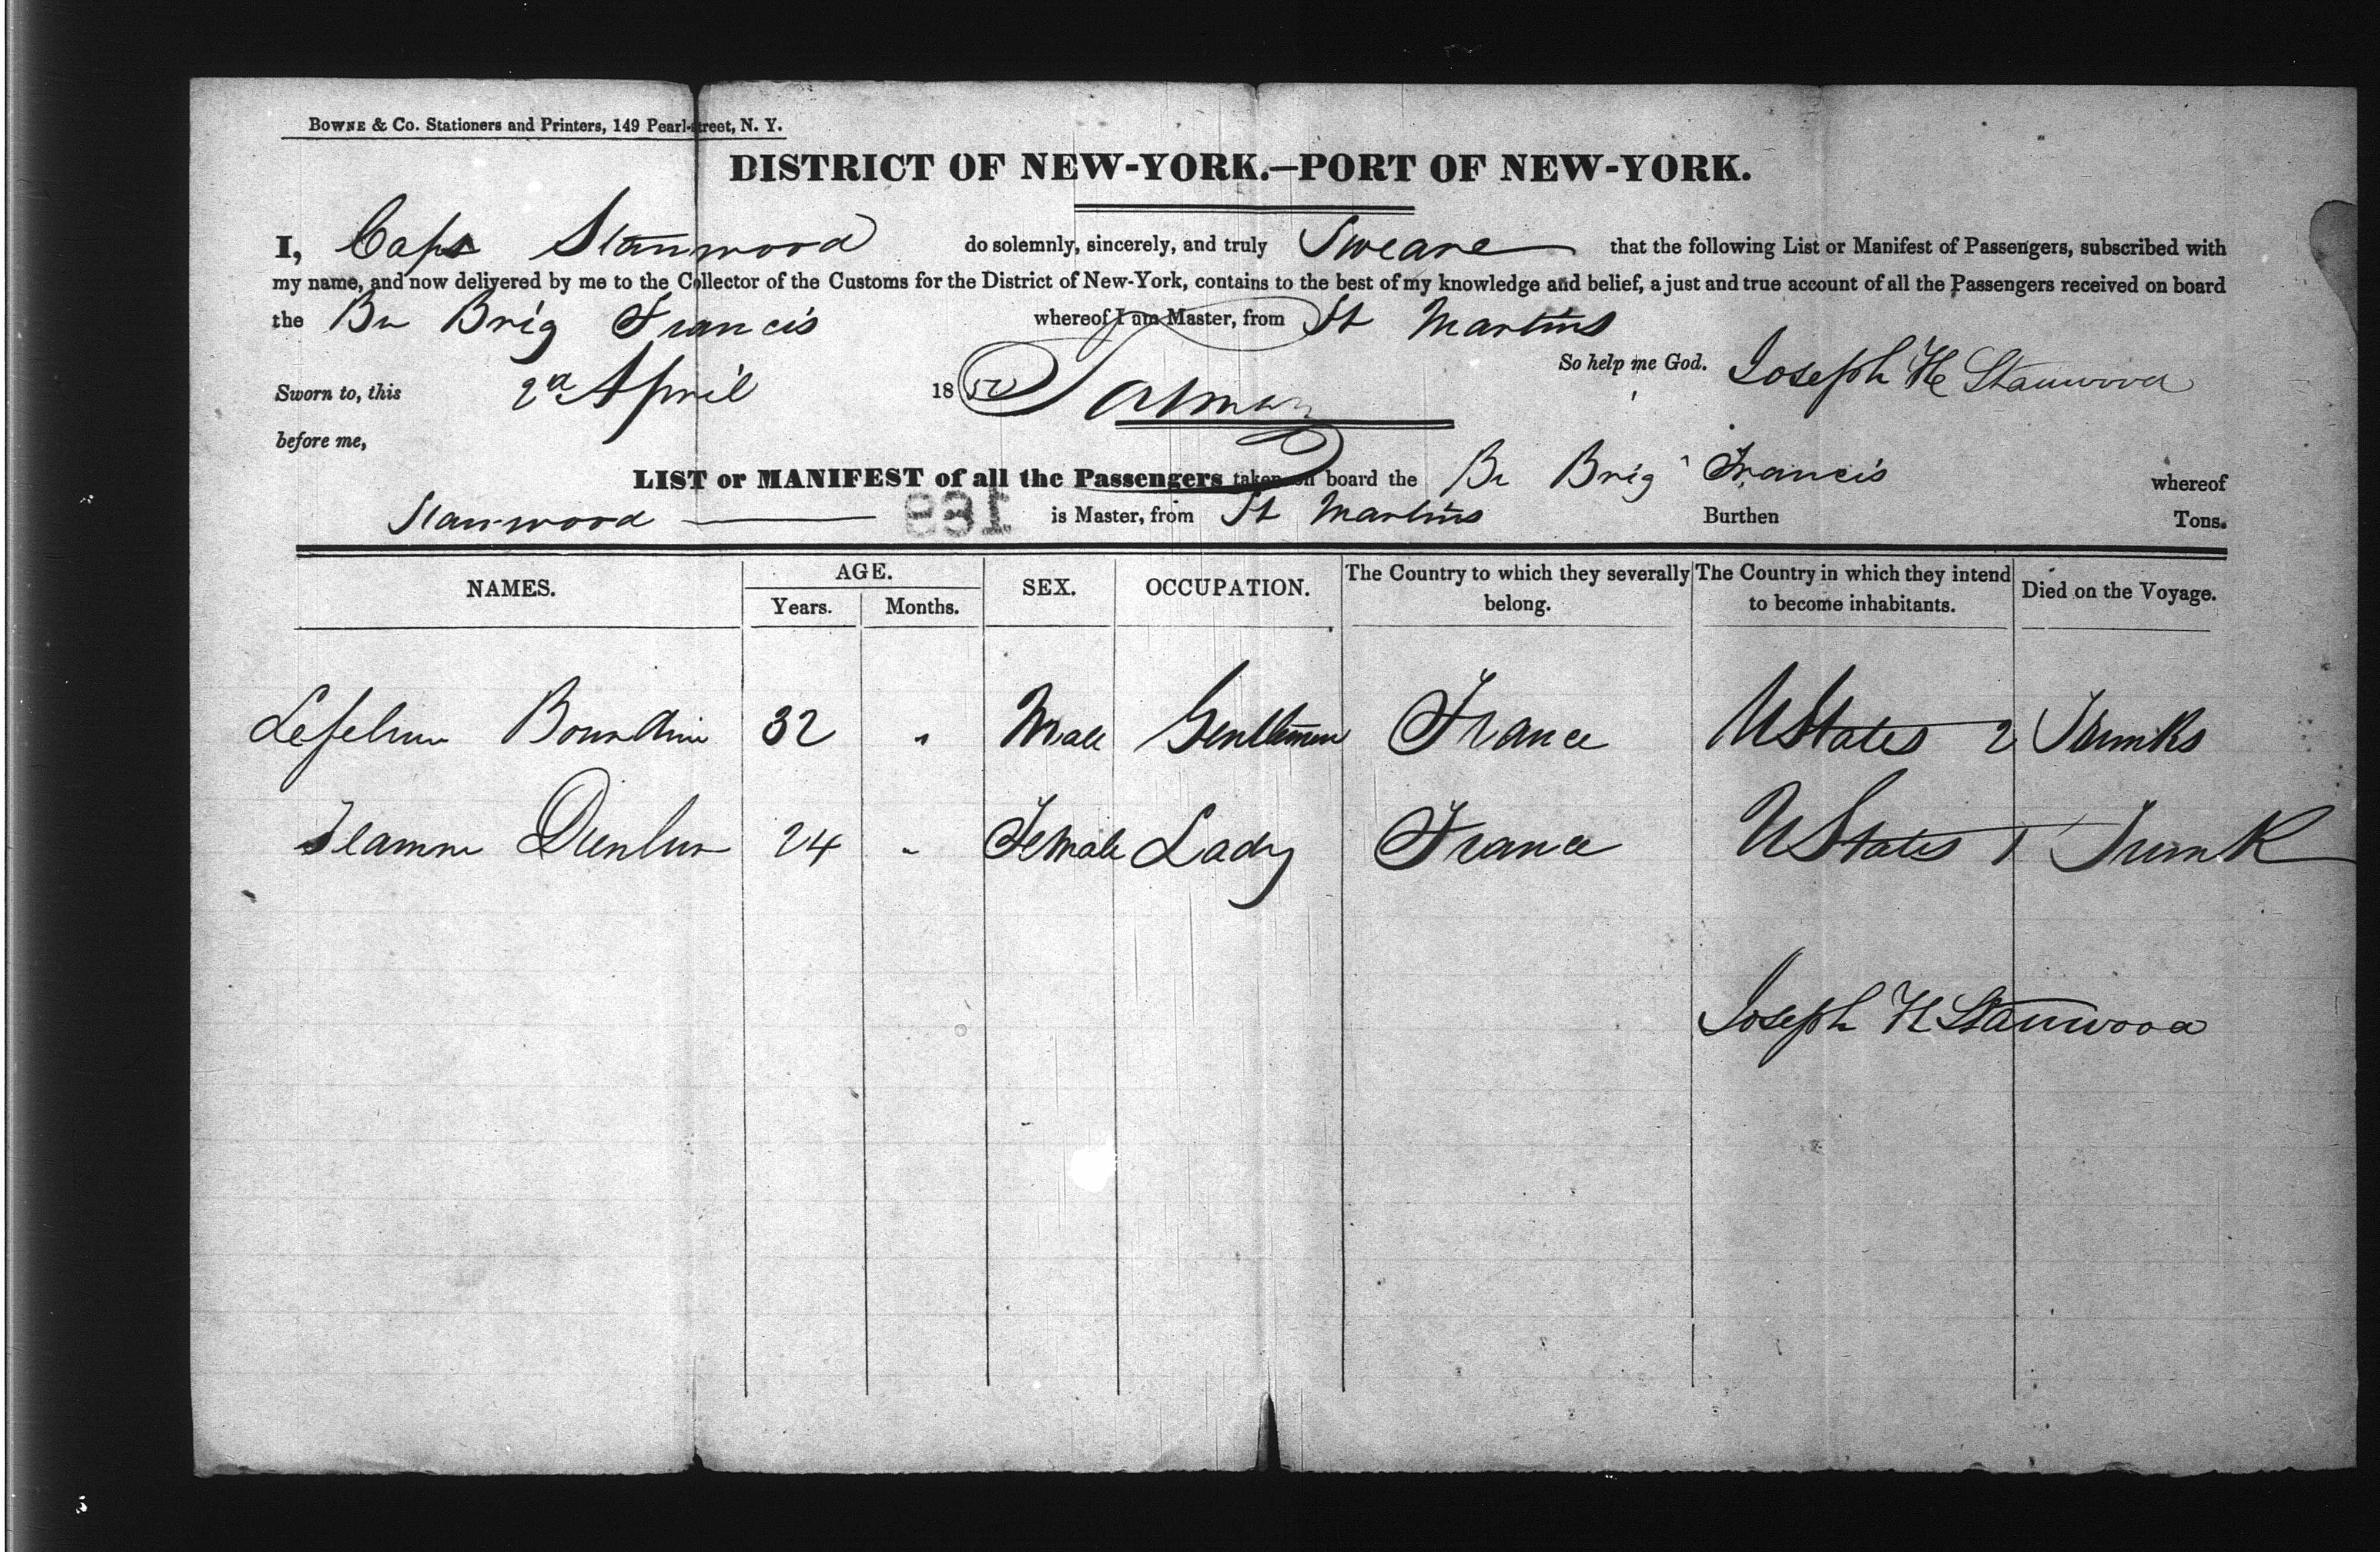 BOWNE & CO. Stationers and Printers, 149 Pearl-street, N. Y.
DISTRICT OF NEW-YORK.—PORT OF NEW-YORK.
I, Capt Stanwood do solemnly, sincerely, and truly Sweare that the following List or Manifest of Passengers, subscribed with
my name, and now delivered by me to the Collector of the Customs for the District of New-York, contains to the best of my knowledge and belief, a just and true account of all the Passengers received on board
the Br Brig Francis whereof I am Master, from St Martins
So help me God. Joseph H Stanwood
Sworn to, this 2d April 18
before me,
LIST or MANIFEST of all the Passengers taken on board the Br Brig Francis whereof
Stanwood is Master, from St Martins Burthen Tons.
NAMES. AGE. Years. Months. SEX. OCCUPATION. The Country to which they severally belong. The Country in which they intend to become inhabitants. Died on the Voyage.
32 " Male Gentleman France UStates 2 Trunks
24 " Female Lady France UStates 1 Trunk
Joseph H Stanwood